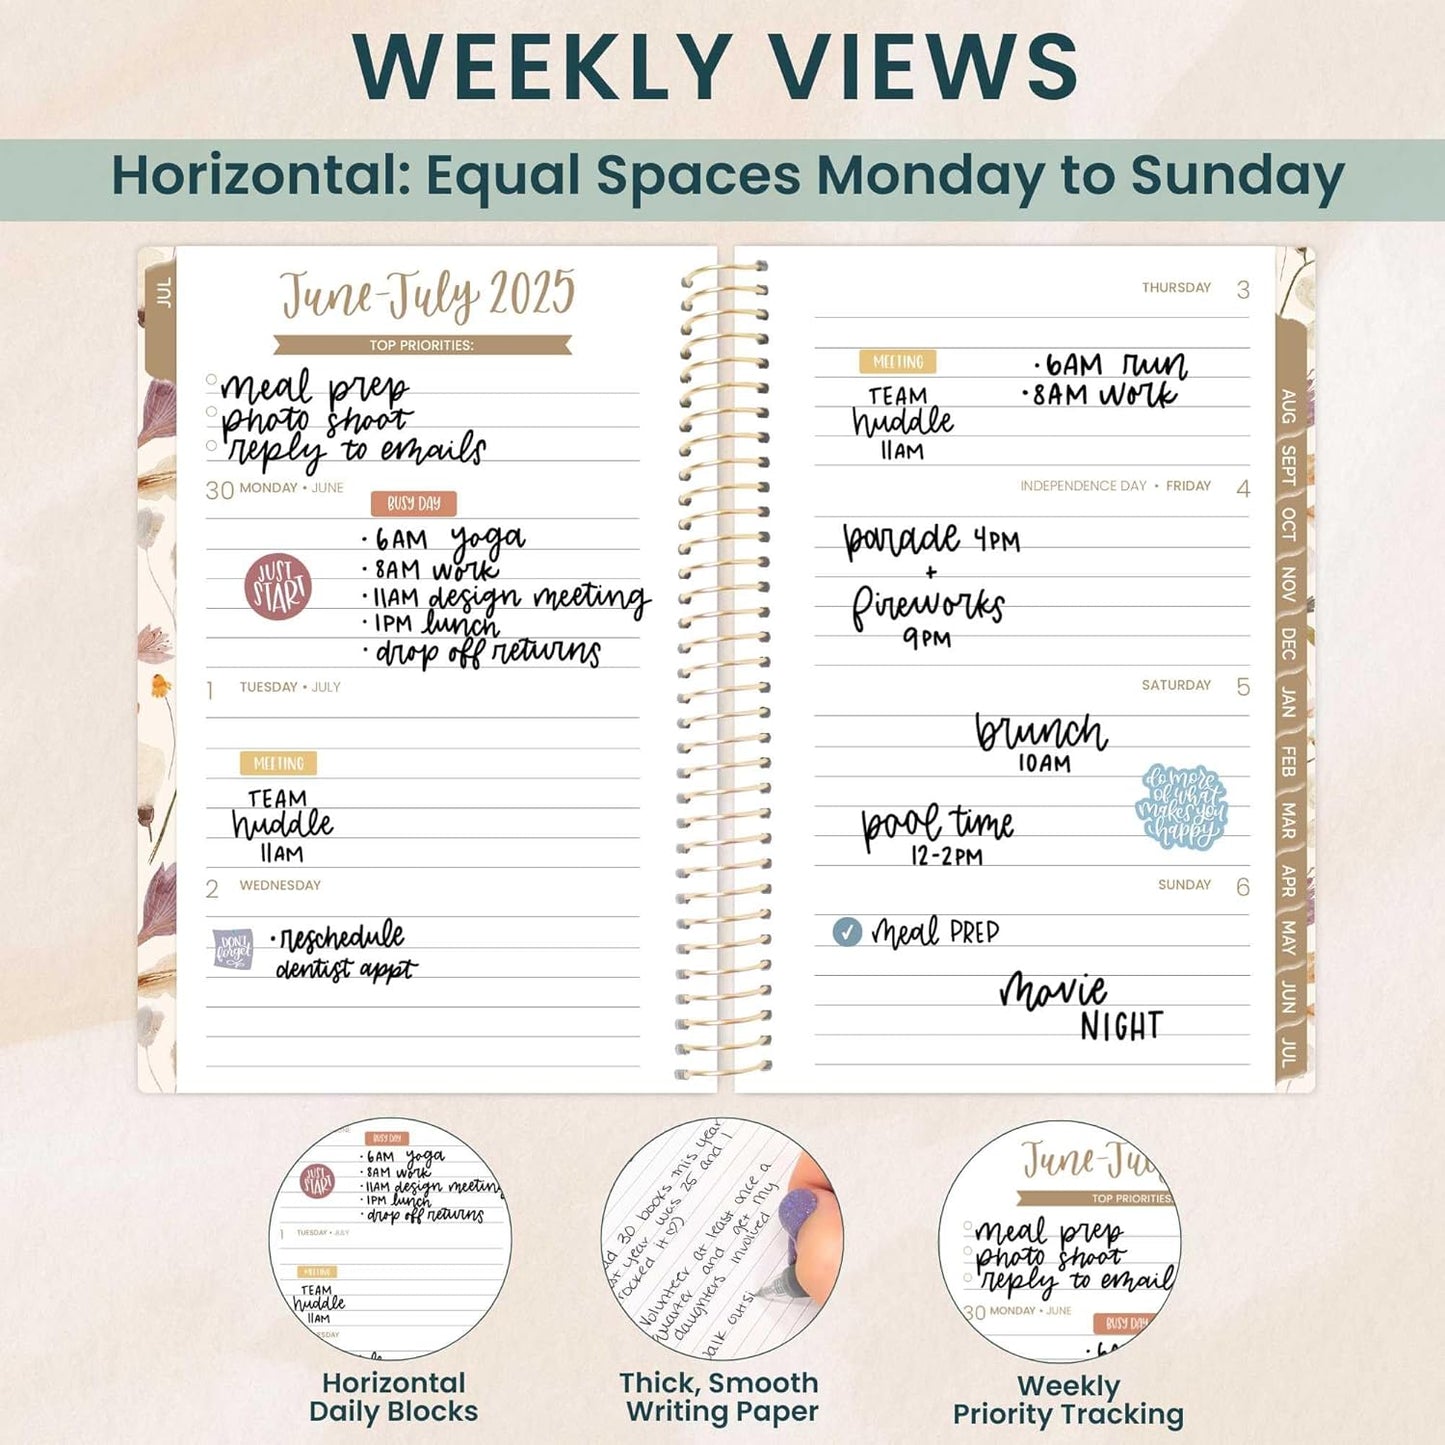 WEEKLY VIEWS
Horizontal: Equal Spaces Monday to Sunday
JUL
June-July 2025
TOP PRIORITIES:
meal prep
photo shoot
reply to emails
30 MONDAY • JUNE
BUSY DAY
JUST
START
• 6AM yoga
• 8AM work
• 11AM design meeting
• 1PM lunch
• drop off returns
1 TUESDAY • JULY
MEETING
TEAM
huddle
11AM
2 WEDNESDAY
DON'T
forget
• reschedule
dentist appt
THURSDAY 3
MEETING
TEAM
huddle
11AM
• 6AM run
• 8AM work
INDEPENDENCE DAY • FRIDAY 4
parade 4PM
+
fireworks
9PM
SATURDAY 5
brunch
10AM
do more
of what
makes you
happy
pool time
12-2PM
SUNDAY 6
meal PREP
movie
NIGHT
AUG
SEPT
OCT
NOV
DEC
JAN
FEB
MAR
APR
MAY
JUN
JUL
BUSY DAY
JUST
START
• 6AM yoga
• 8AM work
• 11AM design meeting
• 1PM lunch
• drop off returns
1 TUESDAY • JULY
MEETING
TEAM
huddle
11AM
Horizontal
Daily Blocks
30 books this year
year was 25 and I
rocked it
Volunteer at least once a
quarter and get my
daughters involved
Thick, Smooth
Writing Paper
June-July
TOP PRIORITIES
meal prep
photo shoot
reply to email
30 MONDAY • JUNE
BUSY DAY
Weekly
Priority Tracking